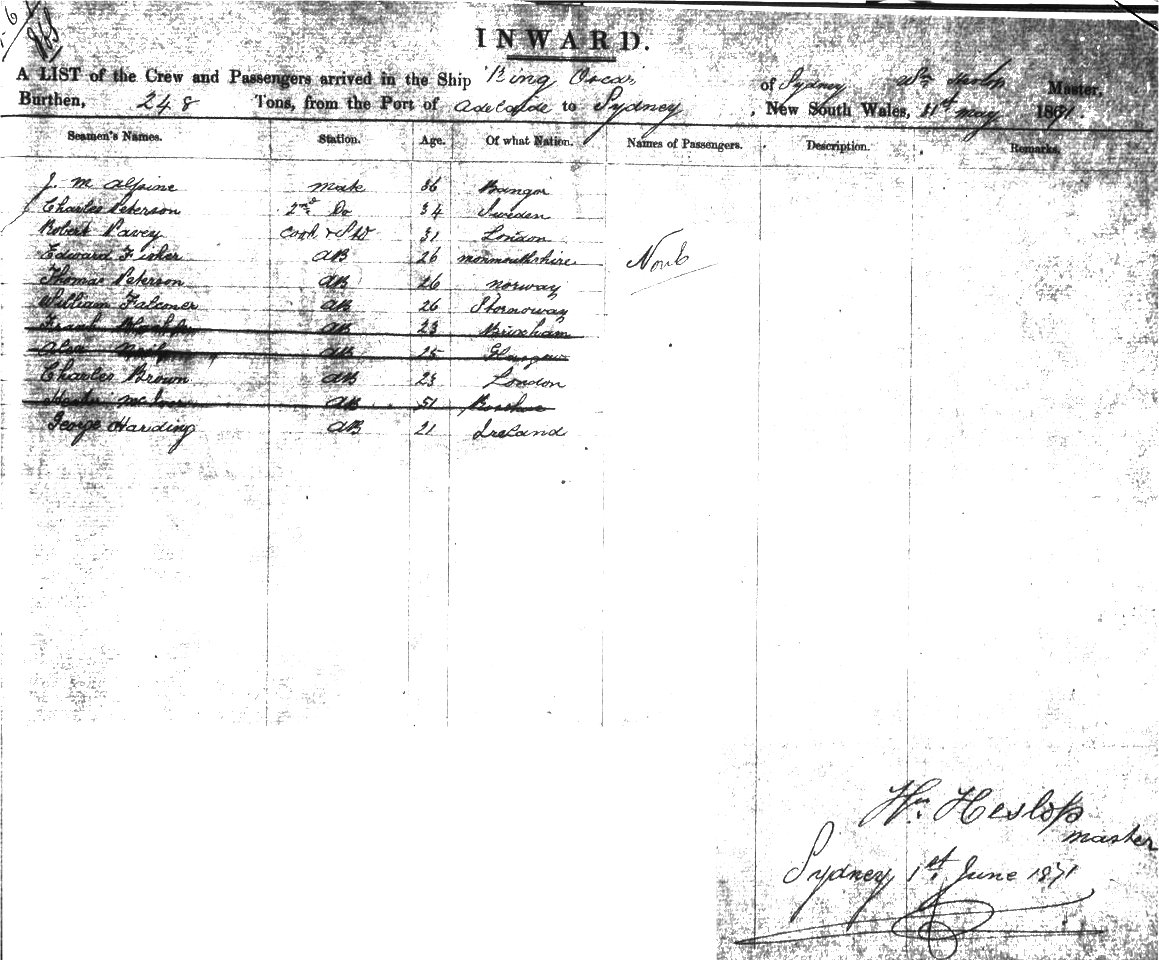 INWARD.
A LIST of the Crew and Passengers arrived in the Ship 'King Oscar' of Sydney Wm Heslop Master,
Burthen, 248 Tons, from the Port of Adelaide to Sydney, New South Wales, 31st May 1871.
Seamen's Names. Station. Age. Of what Nation. Names of Passengers. Description. Remarks.
J. McAlpine Mate 36 Bangor
Charles Peterson 2nd Do 34 Sweden
Robert Pavey Cook & Std 31 London
Edward Fisher AB 26 Monmouthshire None
Thomas Peterson AB 26 Norway
William Falconer AB 26 Stornoway
Frank AB 23 Brixham
Alex AB 25 Glasgow
Charles Brown AB 23 London
AB 51
George Harding AB 21 Ireland
Wm. Heslop
Master
Sydney 1st June 1871